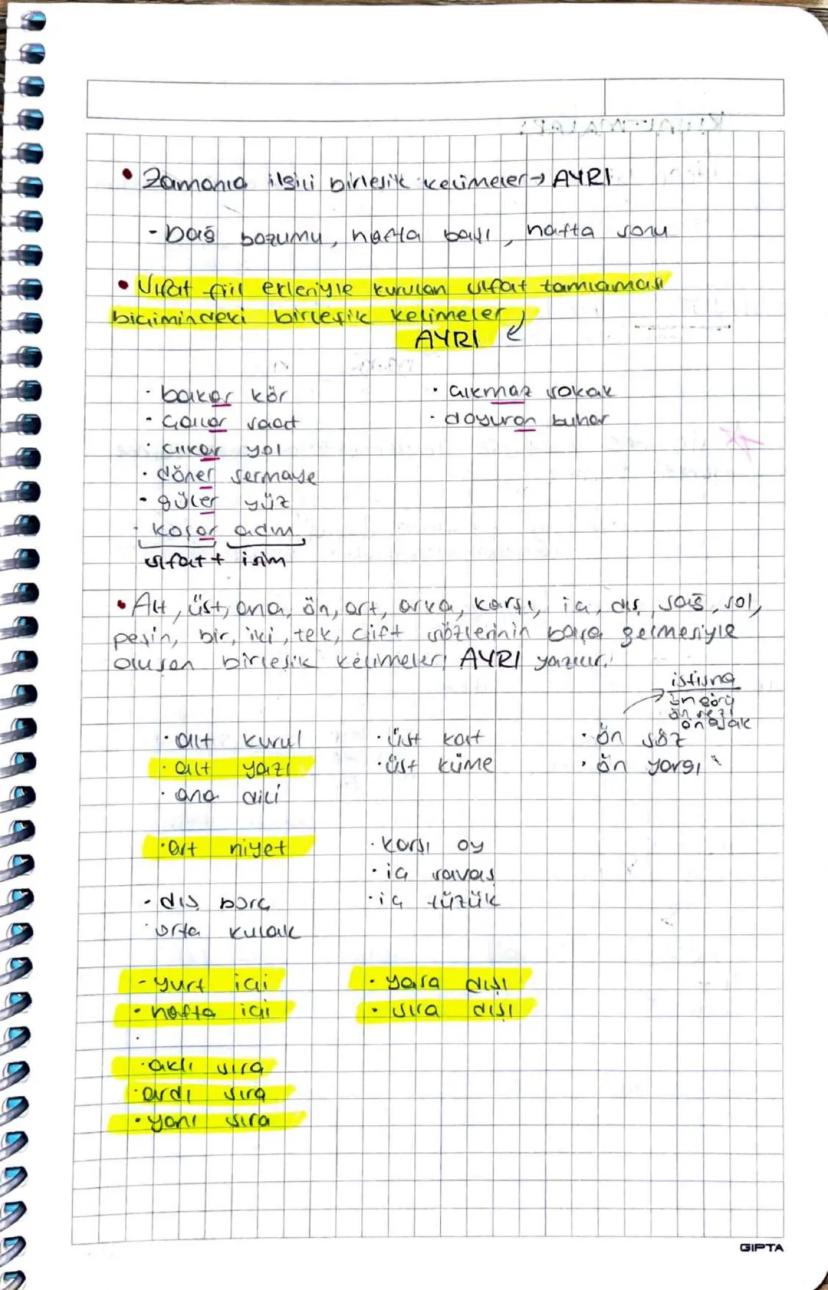 • Zamanla ilgili birleşik kelimeler → AYRI
- bağ bozumu, hafta başı, hafta sonu
• Sıfat fiil ekleriyle kurulan sıfat tamlaması
biçimindeki birleşik kelimeler
AYRI
· bakar kör
· çıkmaz sokak
· çalar saat
· doyuran buhar
· çıkar yol
· döner sermaye
· güler yüz
· koşar adım
sıfat + isim
• Alt, üst, ana, ön, art, arka, karşı, iç, dış, sağ, sol,
peşin, bir, iki, tek, çift sözlerinin başa gelmesiyle
oluşan birleşik kelimeler AYRI yazılır.
istisna
öngörü
önsezi
önayak
· alt kurul
· üst kat
· ön söz
· alt yazı
· üst küme
· ön yargı
· ana dili
· art niyet
· karşı oy
· iç savaş
- dış borç
· iç tüzük
· orta kulak
- yurt içi
· yasa dışı
· hafta içi
· sıra dışı
· aklı sıra
· ardı sıra
· yanı sıra
GIPTA